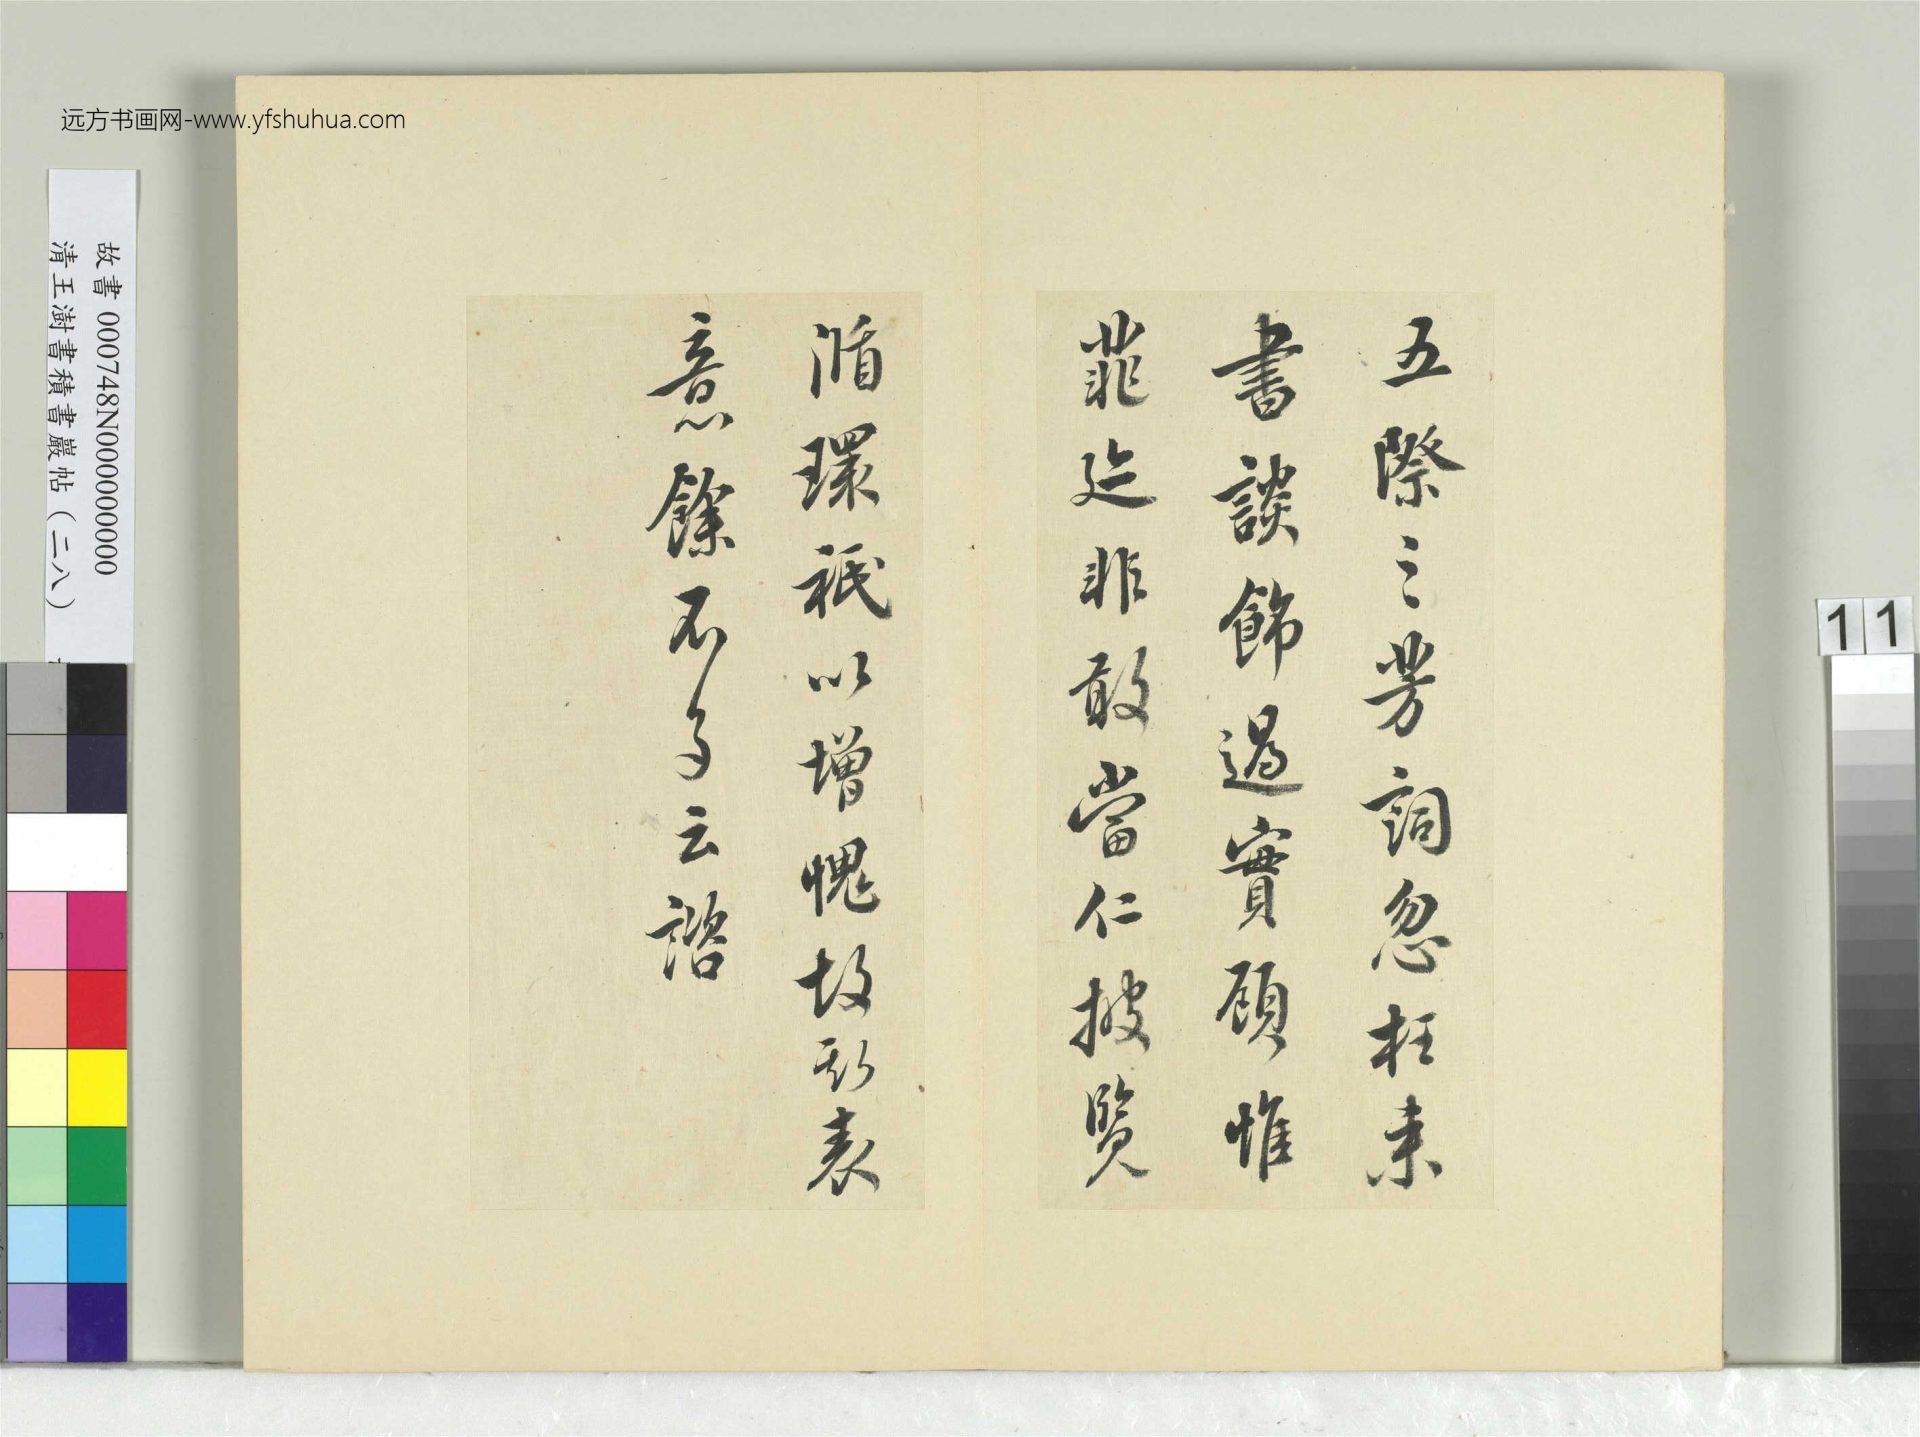 远方书画网-www.yfshuhua.com
故書 000748N000000000
清王澍書積書巖帖（二八）
11
五際之芳詞忽枉来
書談飾過實顧惟
菲迹非敢當仁披覽
循環祇以增愧故斯表
意餘不多云諮